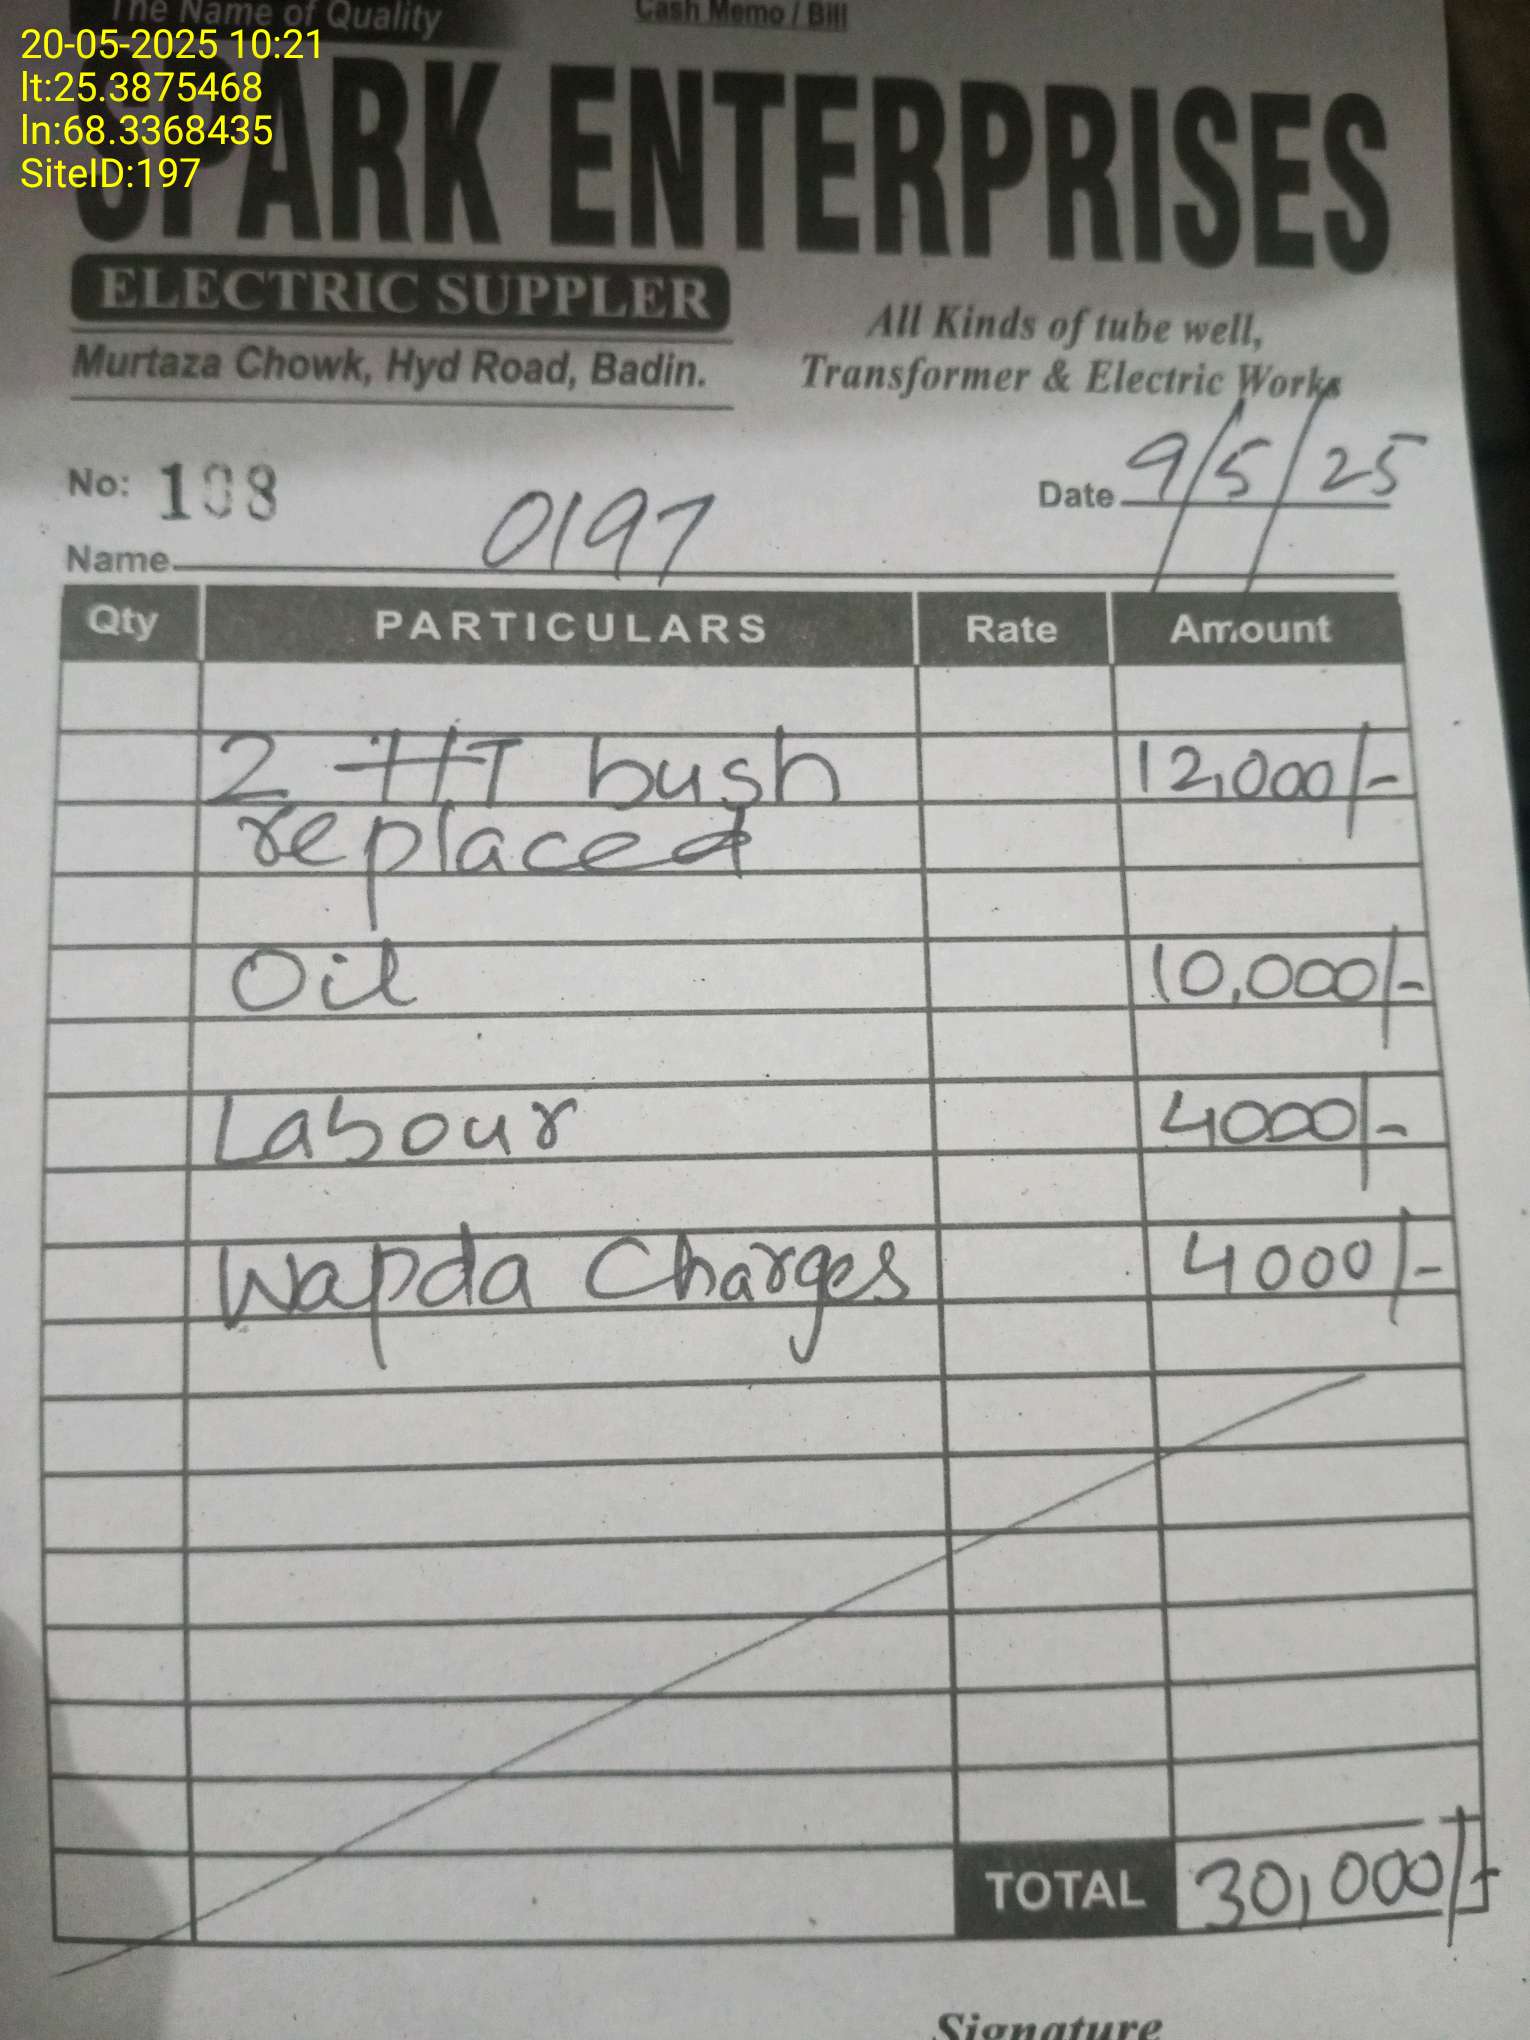 The Name of Quality
Cash Memo / Bill
20-05-2025 10:21
lt:25.3875468
ln:68.3368435
SiteID:197
SPARK ENTERPRISES
ELECTRIC SUPPLER
Murtaza Chowk, Hyd Road, Badin.
All Kinds of tube well,
Transformer & Electric Works
No: 108
Date 9/5/25
Name 0197
Qty PARTICULARS Rate Amount
2 HT bush 12,000/-
replaced
Oil 10,000/-
Labour 4000/-
Wapda Charges 4000/-
TOTAL 30,000/-
Signature